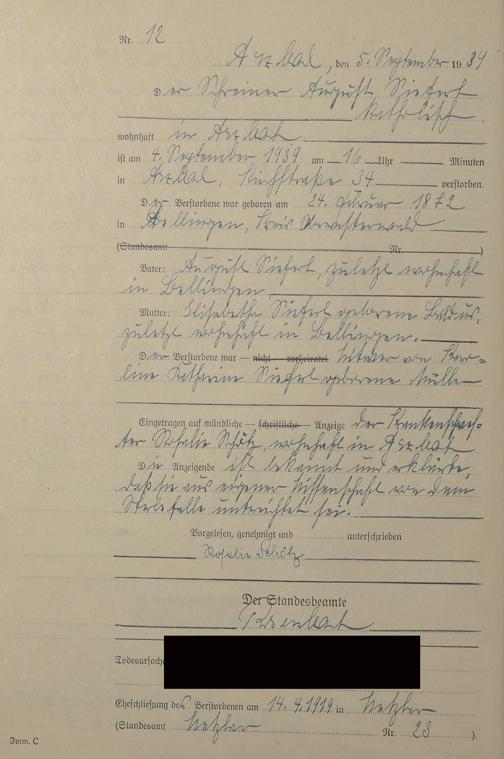 Nr. 12
Arzbach, den 5. September 1939
Der Schreiner August Siefert
katholisch
wohnhaft in Arzbach
ist am 4. September 1939 um 16 Uhr Minuten
in Arzbach, Kirchstraße 34 verstorben.
Der Verstorbene war geboren am 24. Februar 1872
in Bellingen, Kreis Unterwesterwald
(Standesamt Nr. )
Vater: August Siefert, zuletzt wohnhaft
in Bellingen
Mutter: Elisabetha Siefert geborene
zuletzt wohnhaft in Bellingen.
Der Verstorbene war – nicht – verheiratet Witwer von Karo=
line Katharine Siefert geborene Müller
Eingetragen auf mündliche – schriftliche – Anzeige der Krankenschwes=
ter Rosalie Schütz, wohnhaft in Arzbach
Die Anzeigende ist bekannt und erklärte,
daß sie aus eigener Wissenschaft von dem
Sterbefalle unterrichtet sei.
Vorgelesen, genehmigt und unterschrieben
Rosalie Schütz
Der Standesbeamte
Todesursache
Eheschließung des Verstorbenen am 14.4.1919 in
(Standesamt Nr. 23 ).
Form. C